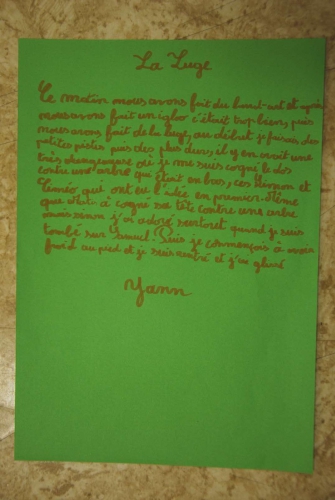 La Luge
Ce matin nous avons fait du land-art et après
nous avons fait un igloo c'était trop bien, puis
nous avons fait de la luge, au début je faisais des
petites pistes puis des plus durs, il y en avait une
très dangereuse où je me suis cogné le dos
contre une arbre qui était en bas, ces Simon et
Timéo qui ont eu l'idée en premier. Même
que a cogné sa tête contre une arbre
mais sinon j'ai adoré surtout quand je suis
tombé sur Samuel. Puis je commençais à avoir
froid au pied et je suis rentré et j'ai
Yann